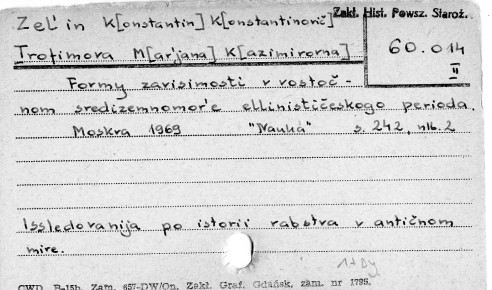 Zel'in K[onstantin] K[onstantinovič]
Zakł. Hist. Powsz. Staroż.
Trofimova M[arjana] K[azimirovna]
60.014
II
Formy zavisimosti v vostoč-
nom sredizemnomor'e ellinističeskogo perioda.
Moskva 1969 "Nauka" s. 242, nlb. 2
Issledovanija po istorii rabstva v antičnom
mire.
CWD B-15h Zam. 657-DW/On. Zakł. Graf. Gdańsk, zam. nr 1795.